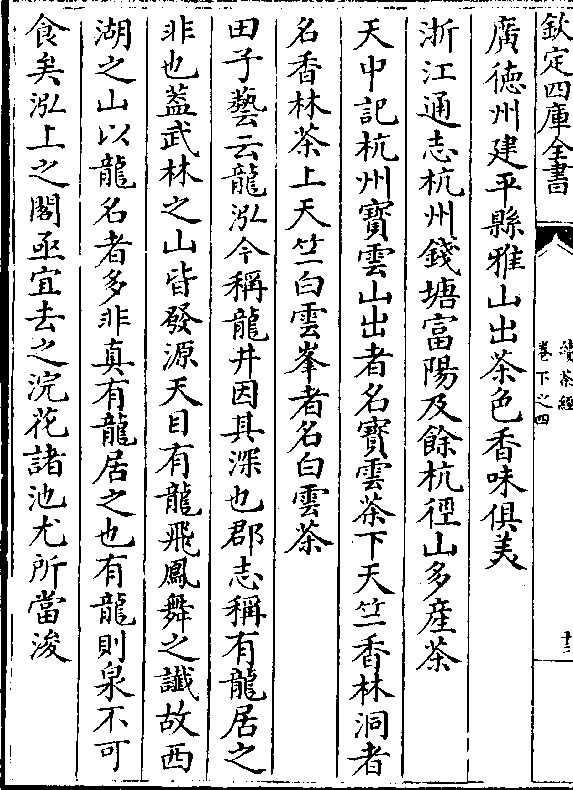 欽定四庫全書
續茶經
卷下之四
十三
廣徳州建平縣雅山出茶色香味俱美
浙江通志杭州錢塘富陽及餘杭徑山多産茶
天中記杭州寳雲山出者名寳雲茶下天竺香林洞者
名香林茶上天竺白雲峯者名白雲茶
田子藝云龍泓今稱龍井因其深也郡志稱有龍居之
非也葢武林之山皆發源天目有龍飛鳳舞之讖故西
湖之山以龍名者多非真有龍居之也有龍則泉不可
食矣泓上之閣亟宜去之浣花諸池尤所當浚